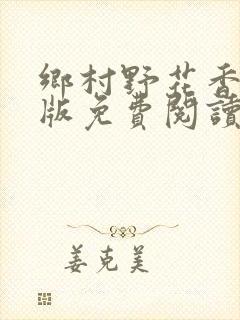 鄉村野花香
版免費閱讀
姜克美